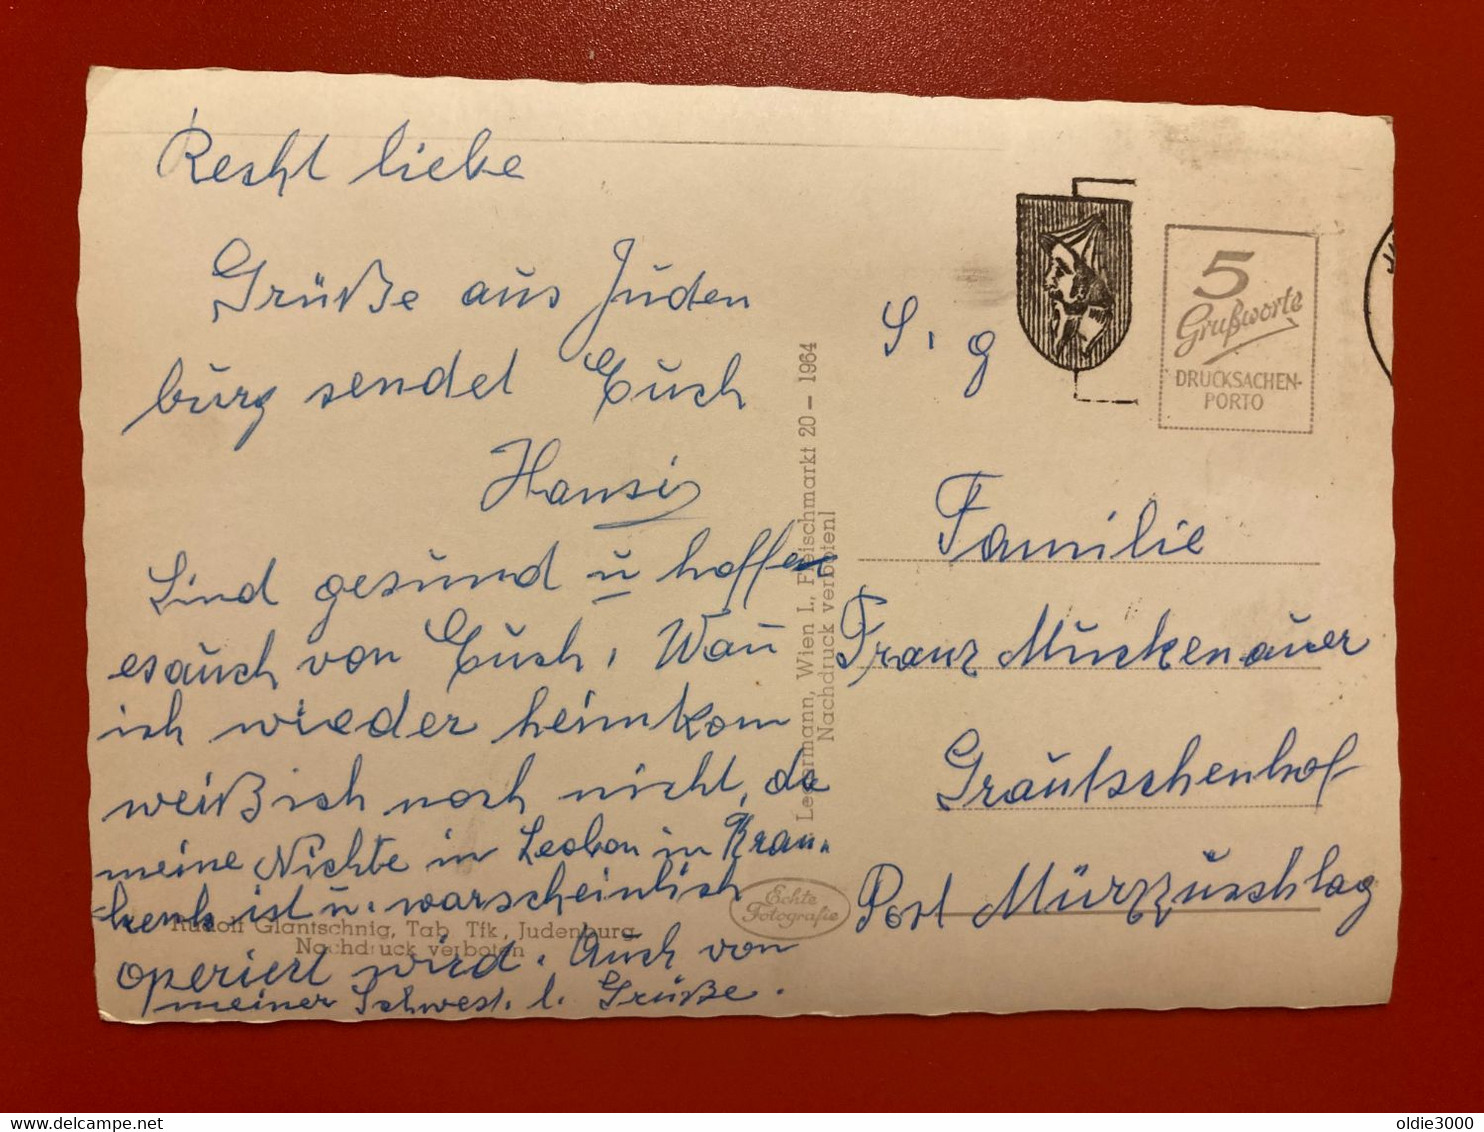 Recht liebe
Grüße aus Juden
burg sendet Euch
Hansi
Sind gesund u hoffen
es auch von Euch. Wan
ich wieder heimkom
weiß ich noch nicht, da
meine Nichte in Leoben in Kran-
kenh ist u. warscheinlich
operiert wird. Auch von
meiner Schwest. l. Grüße.
Rudolf Glantschnig, Tab Tfk, Judenburg
Nachdruck verboten
Echte
Fotografie
Ledermann, Wien I., Fleischmarkt 20 - 1964
Nachdruck verboten!
5
Grußworte
DRUCKSACHEN-
PORTO
S. g
Familie
Franz Muckenauer
Grautschenhof
Post Mürzzuschlag
oldie3000